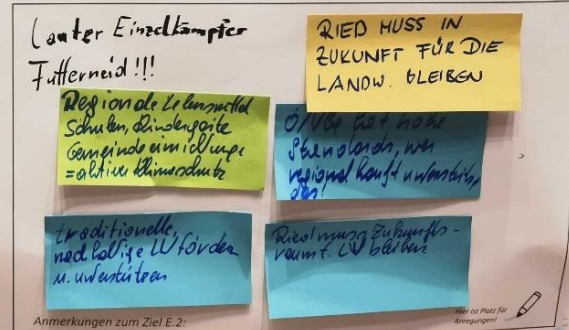 Lauter Einzelkämpfer
Futterneid!!!
RIED MUSS IN
ZUKUNFT FÜR DIE
LANDW. BLEIBEN
Regionale Lebensmittel
Schulen, Kindergärte
Gemeindeeinrichtunge
= aktiver Klimaschutz
Ö/Vbg hat hohe
Standards, wer
regional kauft unterstützt
das!
traditionelle,
nachhaltige LW fördern
u. unterstützen
Ried muss Zukunfts-
raum f. LW bleiben
Anmerkungen zum Ziel E.2:
Hier ist Platz für
Anregungen!